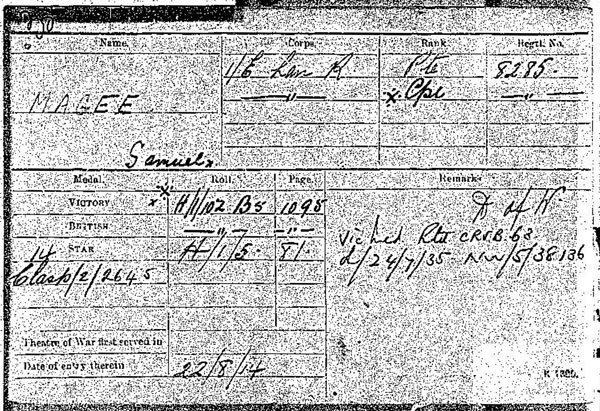 Name. Corps. Rank. Regtl. No.
1/E Lan R Pte 8285.
MAGEE —"— x. Cpl —"—
Samuel
Medal. Roll. Page. Remarks
VICTORY x H/1/102 B5 1095 D of W
BRITISH —"— —"—
14 STAR H/1/5. 81.
Clasp/2/2645
Vic Med Rtd CRVB.63
d/24/7/35 NW/5/38136
Theatre of War first served in
Date of entry therein 22/8/14
K 1380.